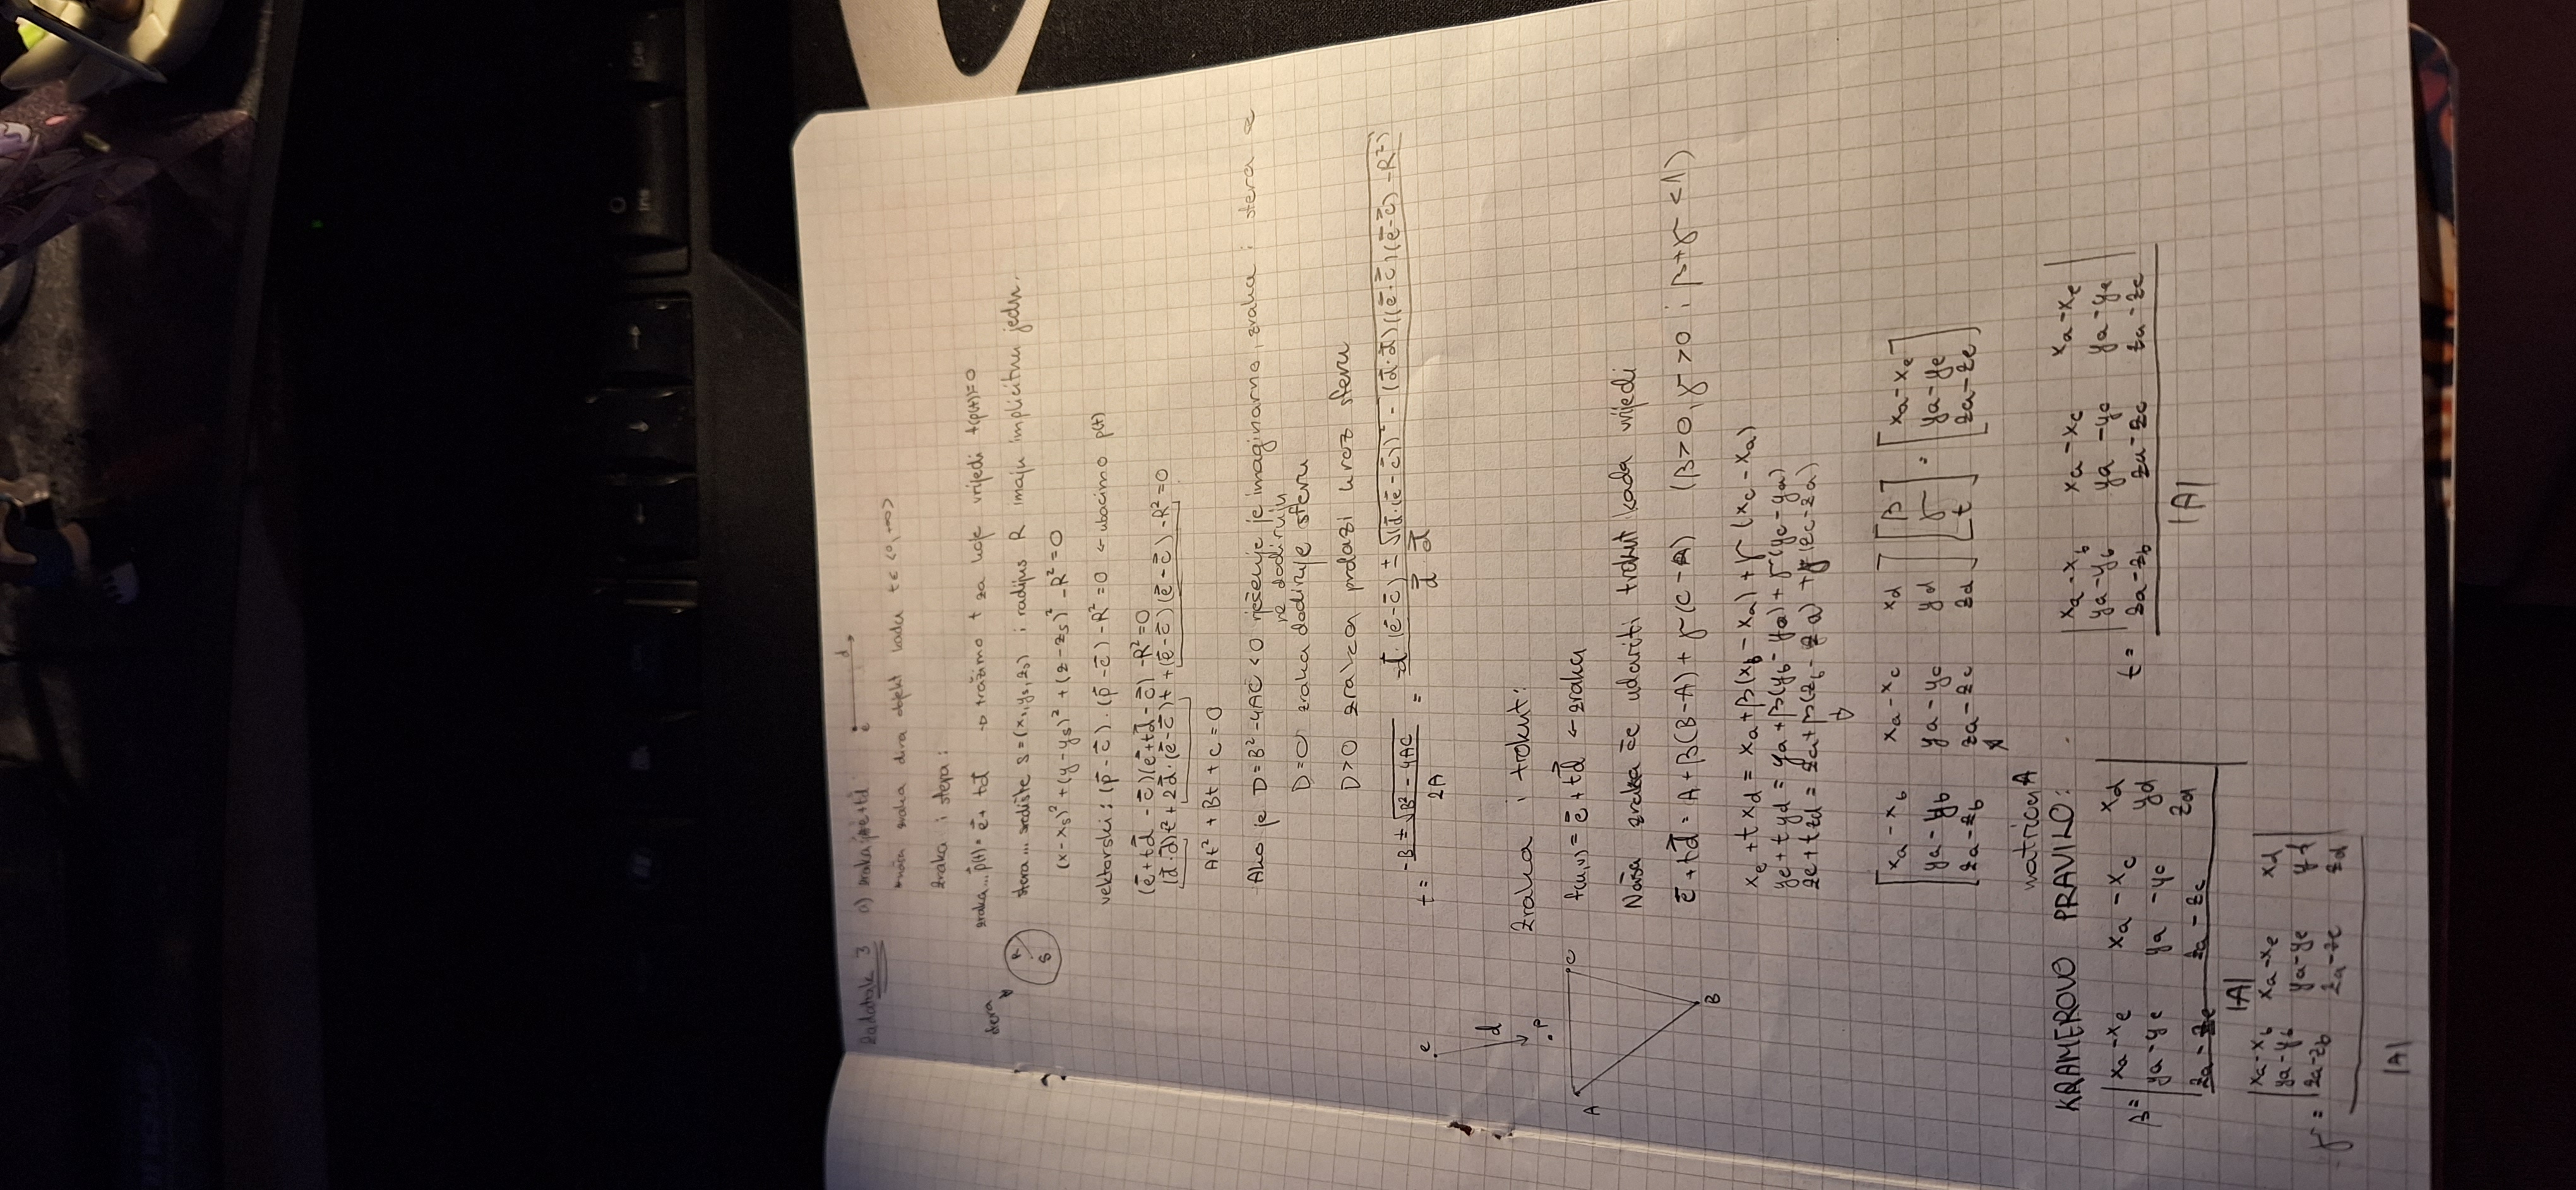 Zadatak 3 a) zraka p=e+td e d
naša zraka dira objekt kada t∈<0,+∞>
Zraka i sfera:
zraka... p(t)= e+ td → tražimo t za koje vrijedi f(p(t))=0
sfera
R
S
sfera... središte S=(xs, ys, zs) i radijus R imaju implicitnu jedn.
(x-xs)²+(y-ys)²+(z-zs)²-R²=0
vektorski: (p-c)·(p-c)-R²=0 ← ubacimo p(t)
(e+td-c)(e+td-c)-R²=0
(d·d)t²+2d·(e-c)t+(e-c)(e-c)-R²=0
At²+Bt+C=0
Ako je D=B²-4AC<0 rješenje je imaginarno, zraka i sfera se
ne dodiruju
D=0 zraka dodiruje sferu
D>0 zraka prolazi kroz sferu
t= -B±√B²-4AC / 2A = -d·(e-c)±√(d·(e-c))²-(d·d)((e-c)(e-c)-R²) / d·d
e
d
P
A C
B
Zraka i trokut:
f(u,v)= e+td ← zraka
Naša zraka će udariti trokut kada vrijedi
e+td= A+β(B-A)+γ(C-A) (β>0, γ>0 i β+γ<1)
xe+txd = xa+β(xb-xa)+γ(xc-xa)
ye+tyd = ya+β(yb-ya)+γ(yc-ya)
ze+tzd = za+β(zb-za)+γ(zc-za)
[xa-xb xa-xc xd] [β] [xa-xe]
[ya-yb ya-yc yd] [γ] = [ya-ye]
[za-zb za-zc zd] [t] [za-ze]
matrica A
KRAMEROVO PRAVILO:
β= |xa-xe xa-xc xd|
|ya-ye ya-yc yd|
|za-ze za-zc zd|
|A|
t= |xa-xb xa-xc xa-xe|
|ya-yb ya-yc ya-ye|
|za-zb za-zc za-ze|
|A|
γ= |xa-xb xa-xe xd|
|ya-yb ya-ye yd|
|za-zb za-ze zd|
|A|
← ↓ →
Ins
Del